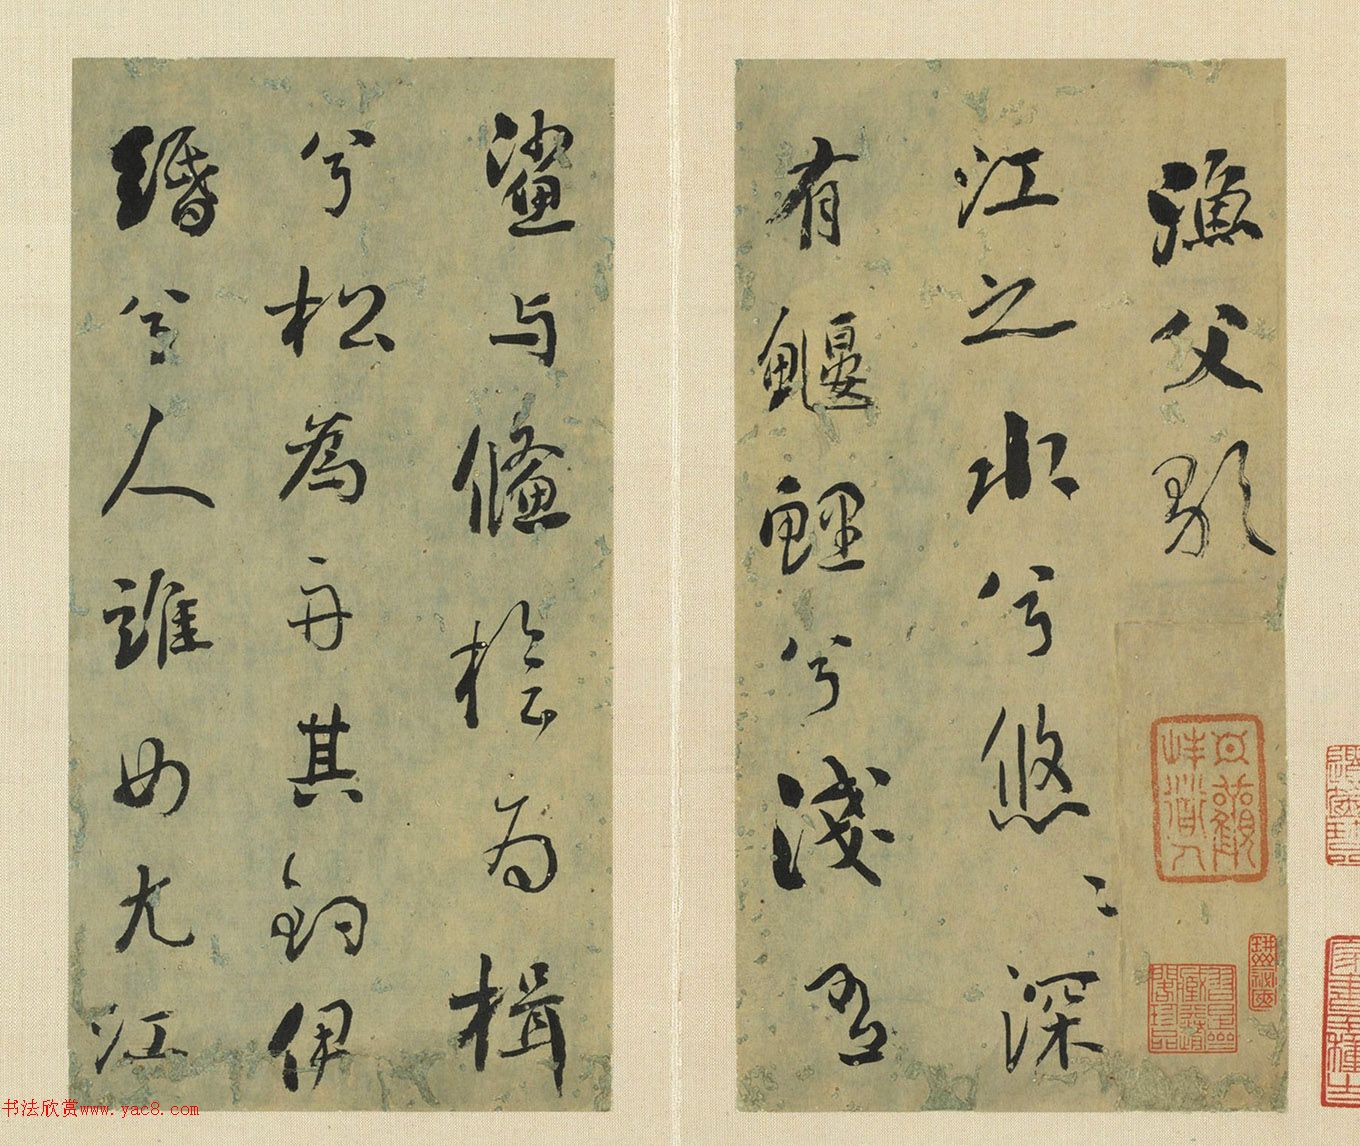 漁父歌
江之水兮悠〻深
有鰋鯉兮淺有
鯊与鯈桧为楫
兮松為舟其鈎伊
緡兮人誰毋尤江
書法欣赏www.yac8.com